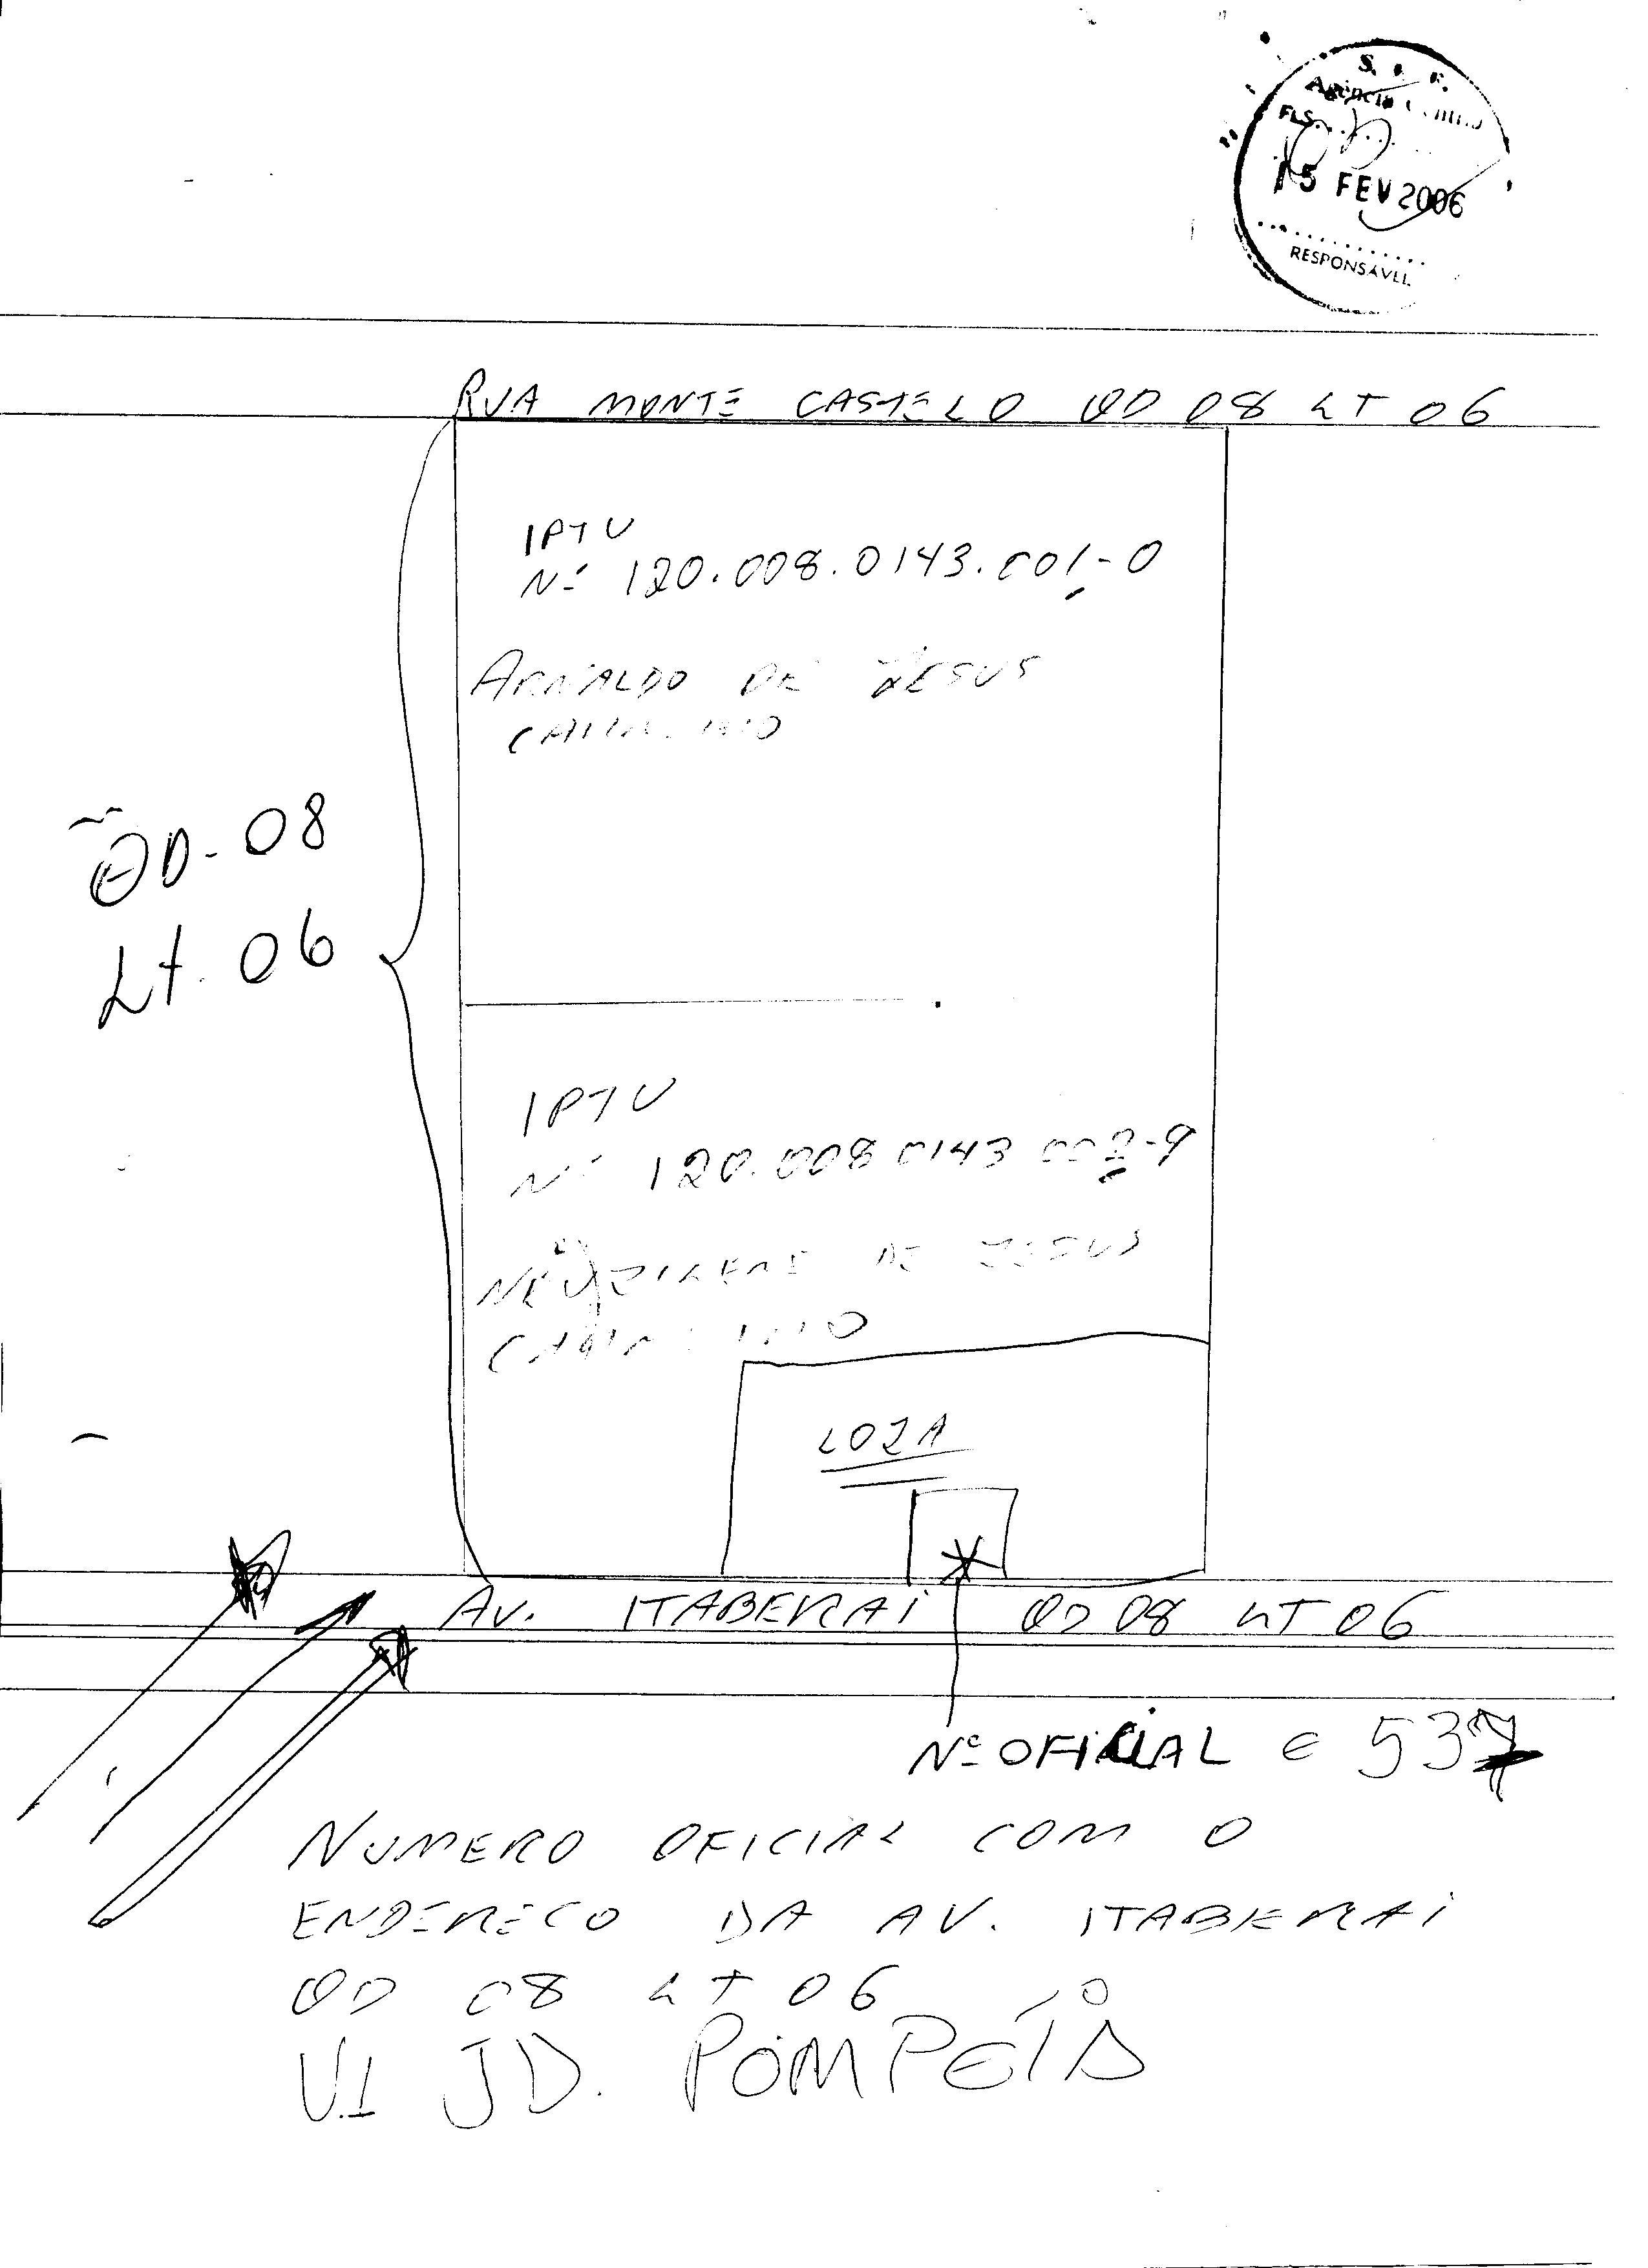 Agência Central
FLS.
15 FEV 2006
RESPONSÁVEL
RUA MONTE CASTELO QD 08 LT 06
IPTU
Nº 120.008.0143.001-0
ARNALDO DE JESUS
QD-08
Lt. 06
IPTU
Nº 120.008 0143 002-9
DE JESUS
LOJA
AV. ITABERAI QD 08 LT 06
Nº OFICIAL E 537
NUMERO OFICIAL COM O
ENDERECO DA AV. ITABERAI
QD 08 LT 06
VI JD. POMPÉIA